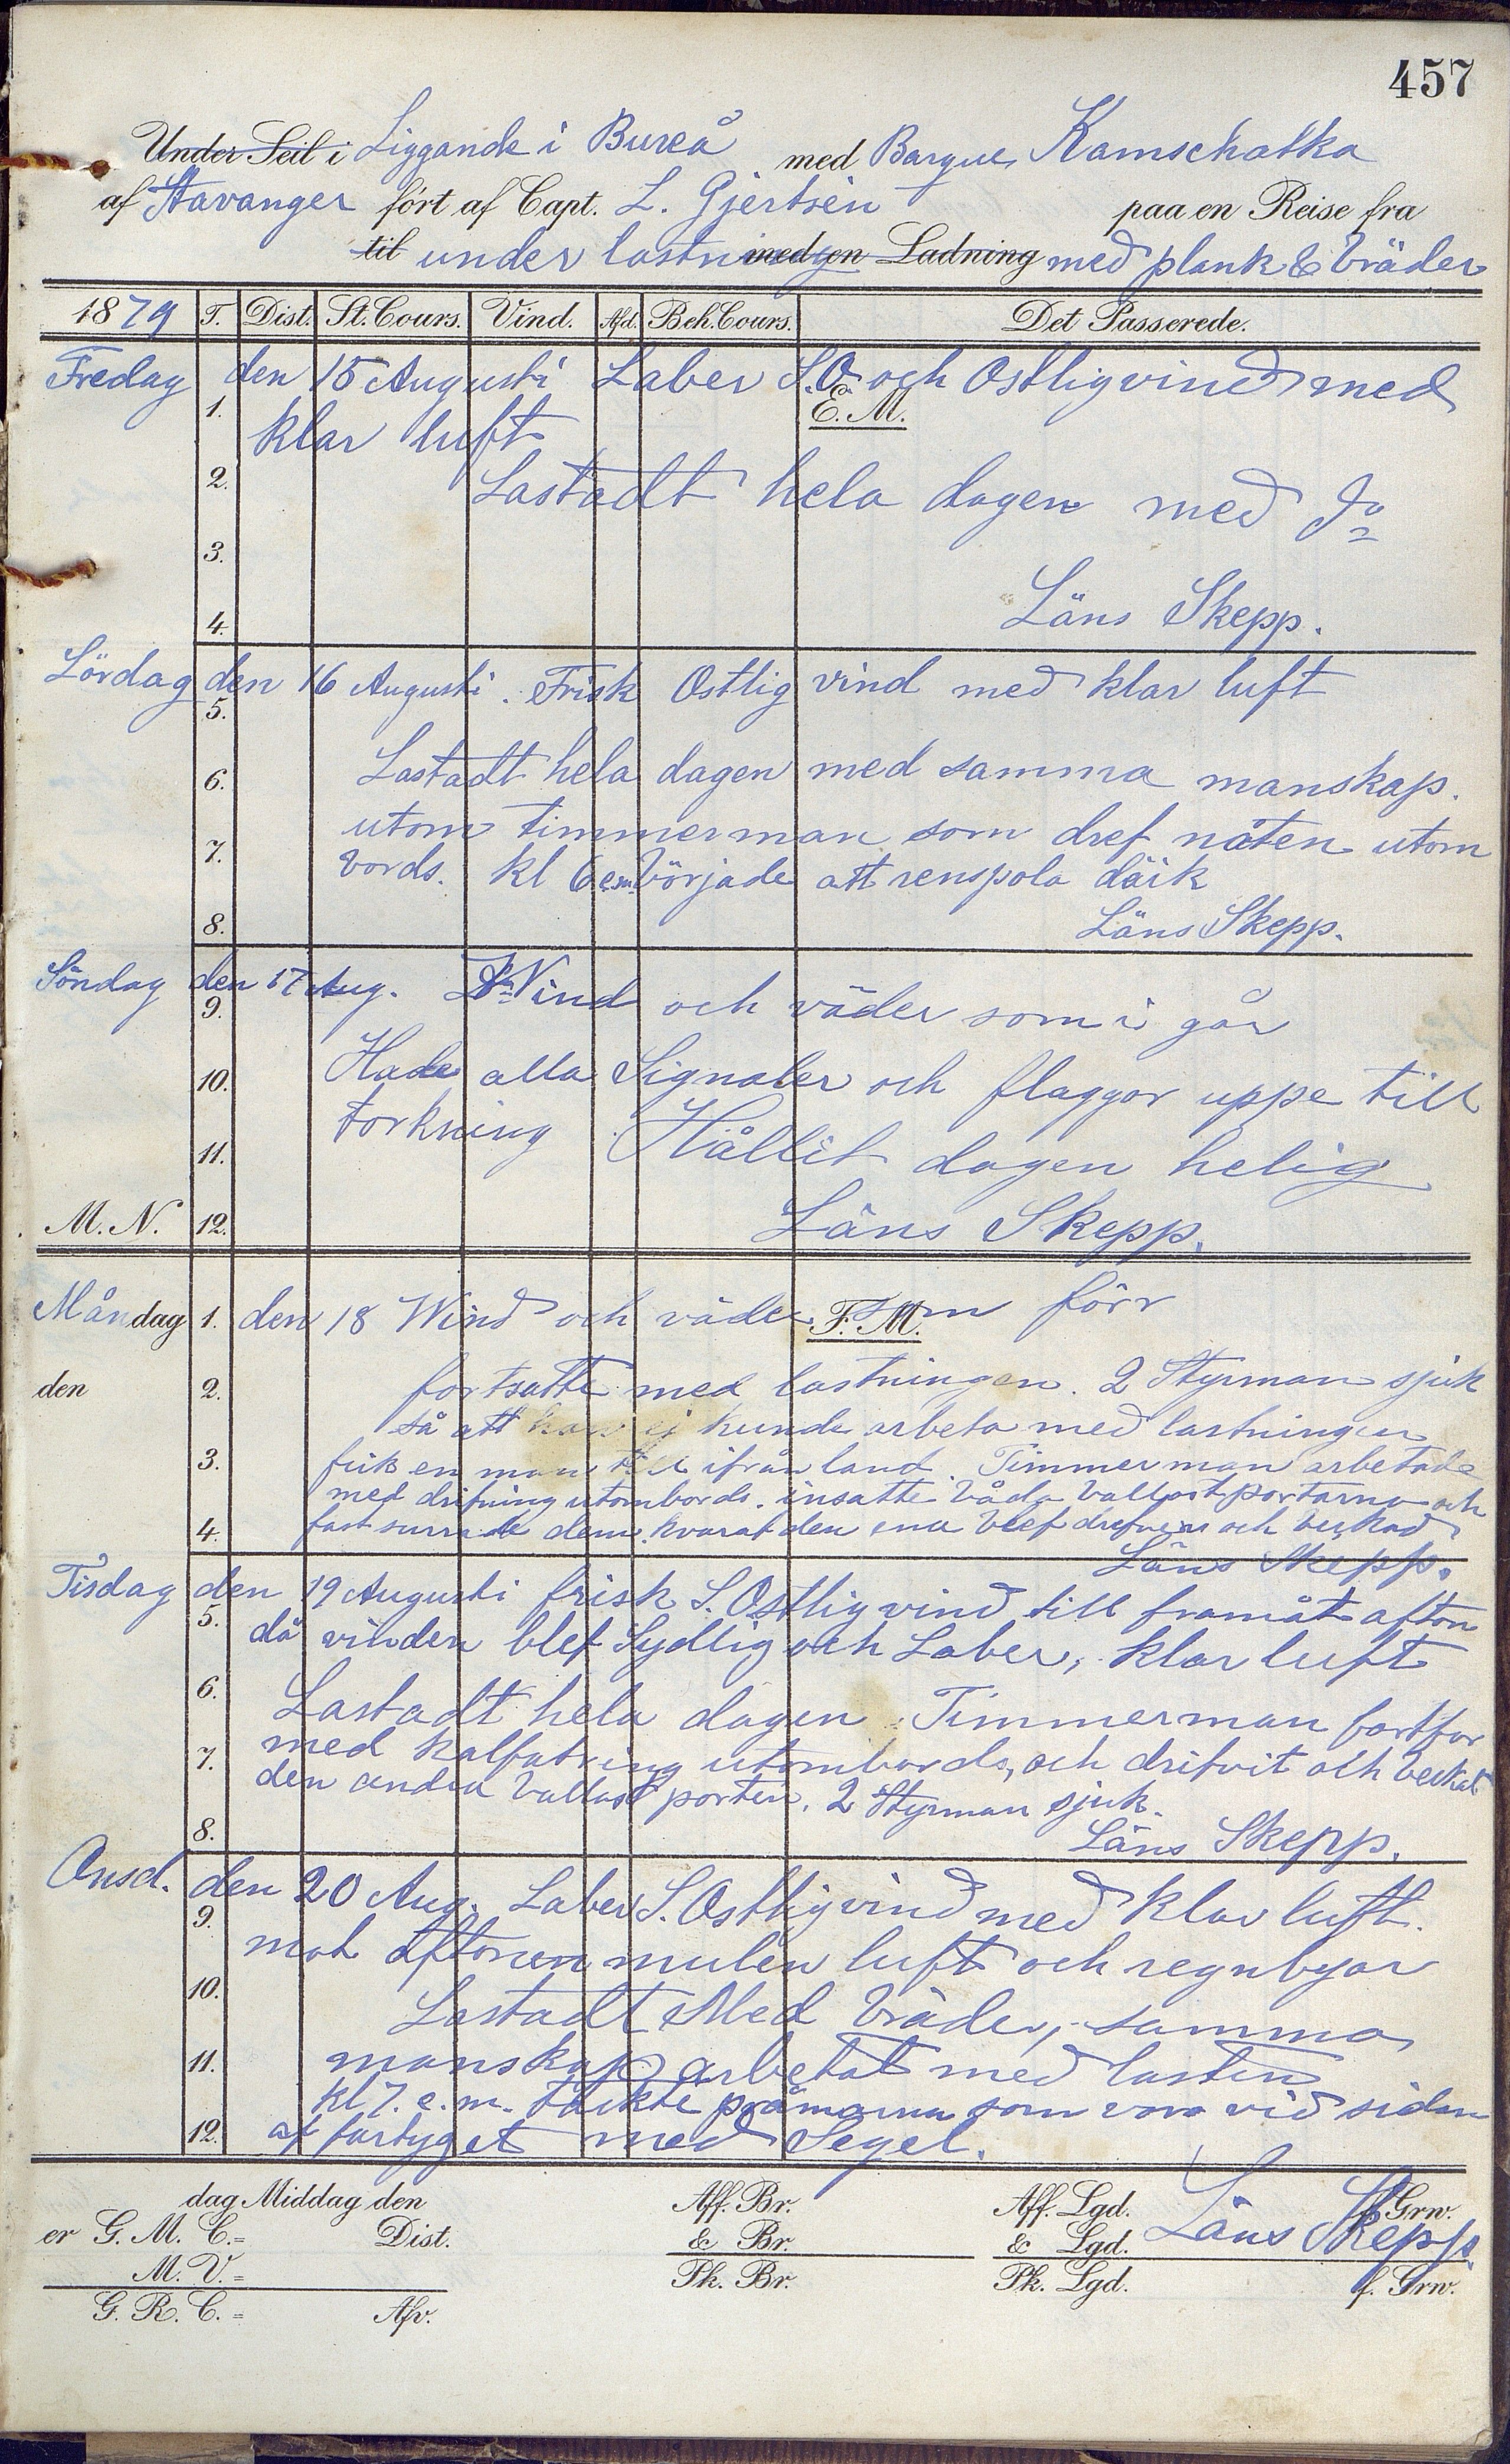 457
Under Seil i Liggande i Bureå med Barque Kamschatka
af Stavanger fört af Capt. L. Gjertsen paa en Reise fra
til under lastning med en Ladning med plank & bräder
1879 T. Dist. St. Cours. Vind. Afd. Beh. Cours. Det Passerede.
Fredag den 15 Augusti Laber S.O. och Ostlig vind med
1. E. M.
klar luft
2. Lastadt hela dagen med Do
3.
Läns Skepp.
4.
Lördag den 16 Augusti. Frisk Ostlig vind med klar luft
5.
6. Lastadt hela dagen med samma manskap.
utom timmerman som dref nåten utom
7. bords. kl 6 e.m. började att renspola däck
8. Läns Skepp.
Söndag den 17 Aug. Vind och väder som i går
9.
10. Hade alla Signaler och flaggor uppe till
torkning Hållit dagen helig
11.
M. N. 12. Läns Skepp.
Måndag 1. den 18 Wind och väder som förr
F. M.
den 2. fortsatte med lastningen. 2 Styrman sjuk
så att han ej kunde arbeta med lastningen
3. fick en man till ifrån land. Timmerman arbetade
med drifning utombords. insatte båda ballastportarna och
4. fastsurrade dem, hvaraf den ena blef drefven och beckad
Läns Skepp.
Tisdag den 19 Augusti frisk S. Ostlig vind till framåt afton
5. då vinden blef Sydlig och Laber, klar luft
6. Lastadt hela dagen. Timmerman fortfor
7. med kalfatring utombords, och drifvit och beckat
den andra ballast porten. 2 Styrman sjuk.
8. Läns Skepp.
Onsd. den 20 Aug. Laber S. Ostlig vind med klar luft.
9. mot aftonen mulen luft och regnbyar
10. Lastadt Med bräder, samma
11. manskap arbetat med lasten
kl 7. e.m. täckte pråmarna som voro vid sidan
12. af fartyget med Segel.
dag Middag den Aff. Br. Aff. Lgd. f. Grw.
er G. M. C. = Dist. & Br. & Lgd. Läns Skepp.
M. V. = Pk. Br. Pk. Lgd. f. Grw.
G. R. C. = Afv.